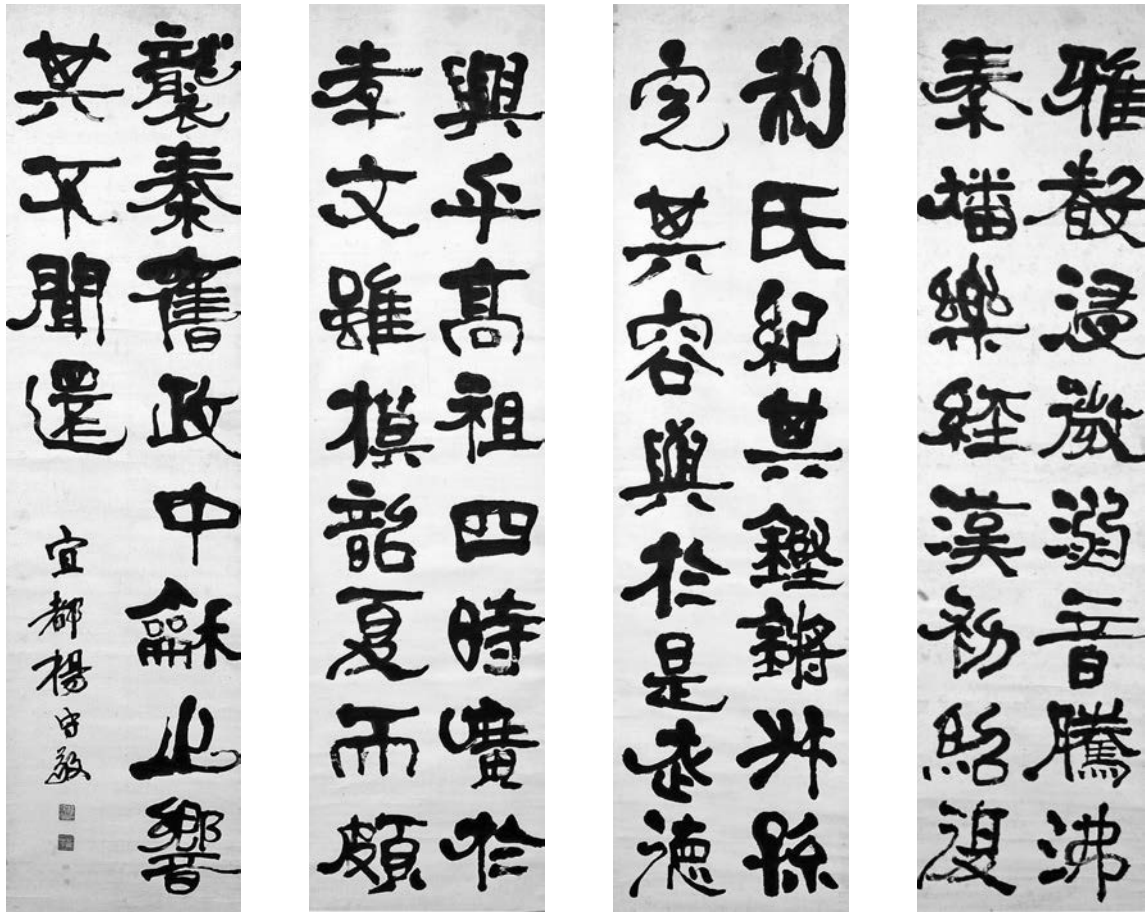 雅聲浸微溺音騰沸
秦燔樂經漢初紹復
制氏紀其鏗鏘叔孫
定其容與於是武德
興乎高祖四時曠於
孝文雖模韶夏而頗
襲秦舊政中龢之響
其不聞還
宜都楊守敬